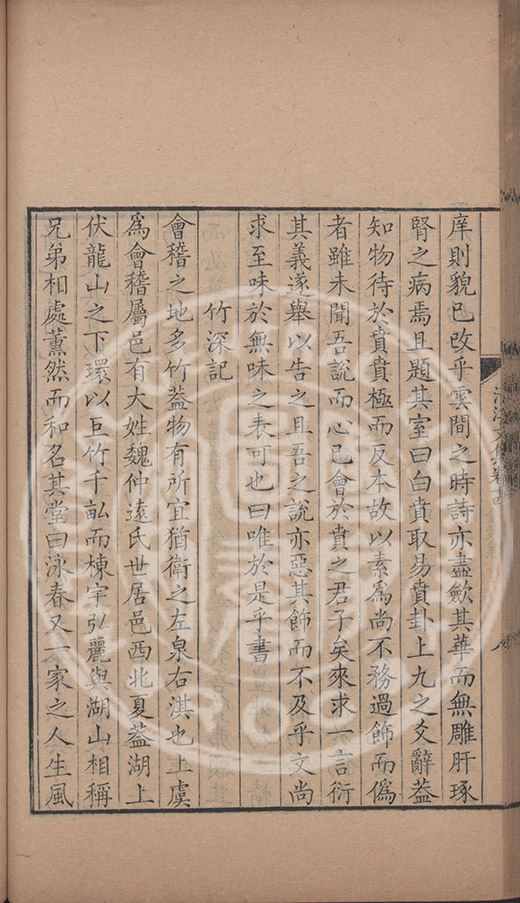 庠則貌已改乎雲間之時詩亦盡歛其華而無雕肝琢
腎之病焉且題其室曰白賁取易賁卦上九之爻辭葢
知物待於賁賁極而反本故以素爲尚不務過飾而僞
者雖未聞吾說而心已會於賁之君子矣來求一言衍
其義遂舉以告之且吾之說亦惡其飾而不及乎文尚
求至味於無味之表可也曰唯於是乎書
竹深記
會稽之地多竹葢物有所宜猶衛之左泉右淇也上虞
爲會稽屬邑有大姓魏仲遠氏世居邑西北夏葢湖上
伏龍山之下環以巨竹千畝而棟宇弘麗與湖山相稱
兄弟相處薰然而和名其堂曰泳春又一家之人生風
文集卷